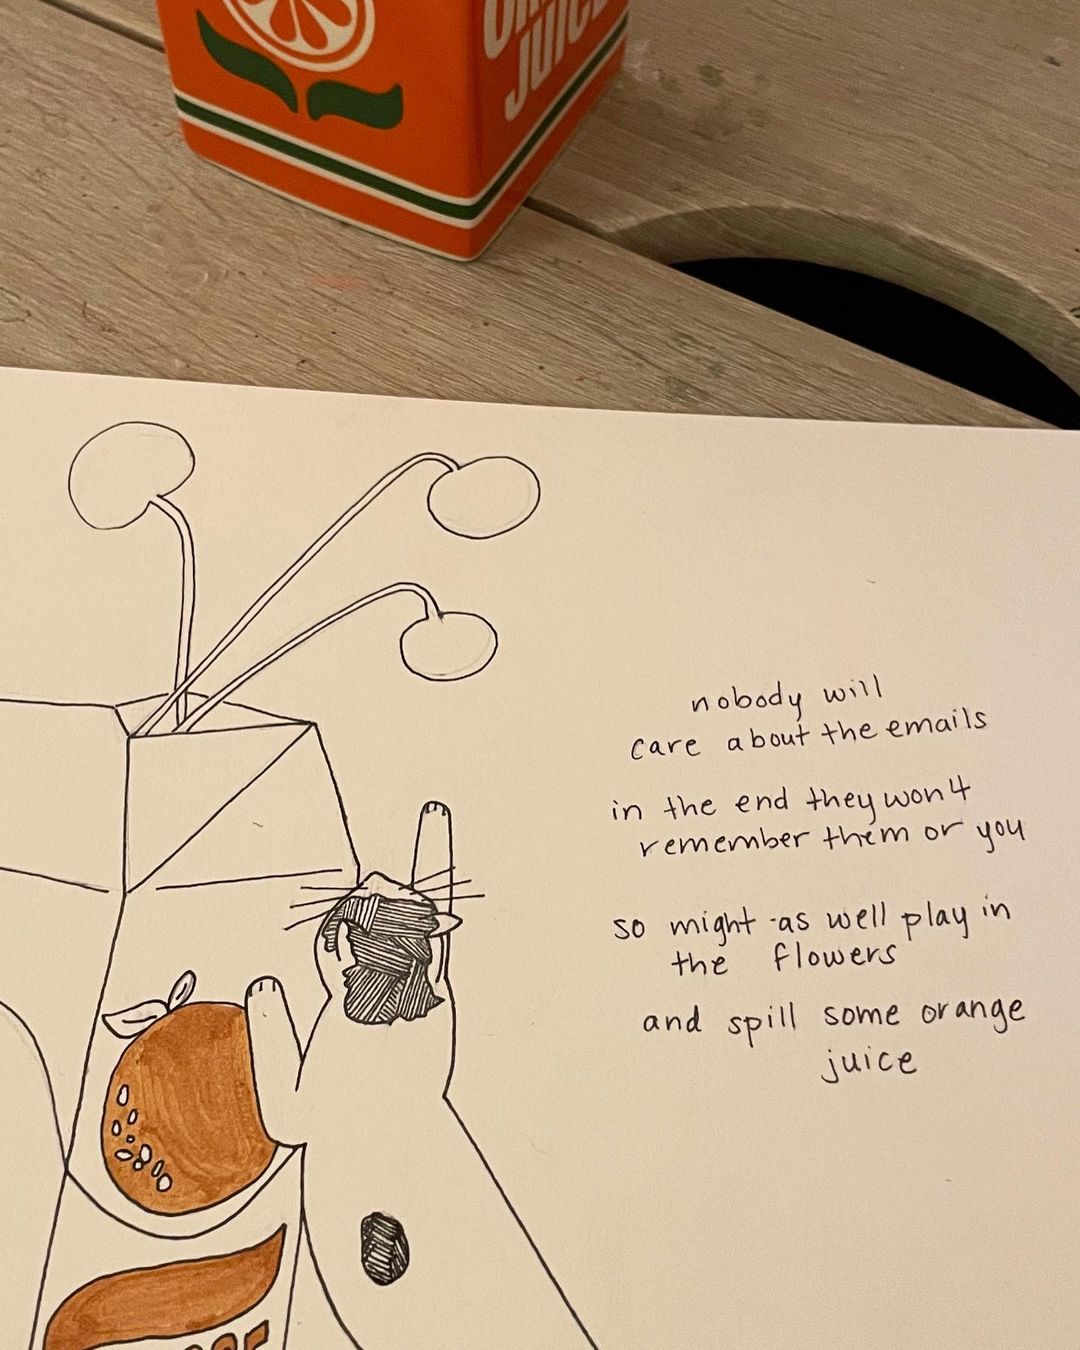 JUICE
nobody will
care about the emails
in the end they won't
remember them or you
so might as well play in
the flowers
and spill some orange
juice